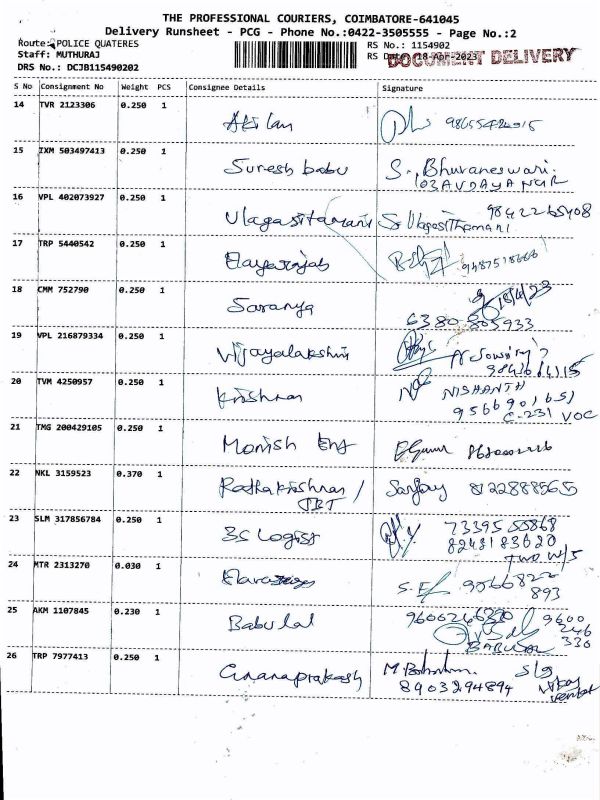 THE PROFESSIONAL COURIERS, COIMBATORE-641045
Delivery Runsheet - PCG - Phone No.:0422-3505555 - Page No.:2
Route: POLICE QUATERES
RS No.: 1154902
Staff: MUTHURAJ
RS Date: 18-Apr-2023
DOCUMENT DELIVERY
DRS No.: DCJB115490202
S No Consignment No Weight PCS Consignee Details Signature
14 TVR 2123306 0.250 1
Akilan
15 IXM 503497413 0.250 1
Suresh babu S. Bhuvaneswari
103 AVDAYA NGR
16 VPL 402073927 0.250 1
98422 65408
Ulagasitamani S. UlagasiThamani
17 TRP 5440542 0.250 1
9487518668
18 CMM 752790 0.250 1
18/4/23
Saranya
6380 805933
19 VPL 216879334 0.250 1
Vijayalakshmi
20 TVM 4250957 0.250 1
Krishnan NISHANTH
9566901651
C-231 VOC
21 TMG 200429105 0.250 1
Monish Ent
22 NKL 3159523 0.370 1
Rathakrishnan / Sanjay 8122888565
23 SLM 317856784 0.250 1
3S Logist 73395 55868
8248183620
TWO W/S
24 MTR 2313270 0.030 1
9566822
893
25 AKM 1107845 0.230 1
Babulal 9600246330 9600
246
330
BABULAL
26 TRP 7977413 0.250 1
Gnanaprakash
8903294894